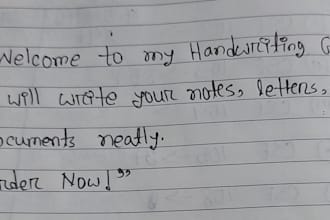 Welcome to my Handwriting
will write your notes, letters,
ocuments neatly.
rder Now!”